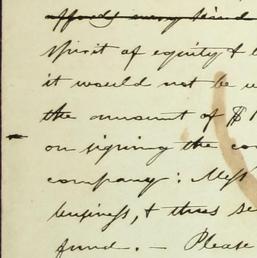 affords every kind
spirit of equity &
it would not be
the amount of $1
on signing the co
company: Mess
business, & thus se
fund. — Please